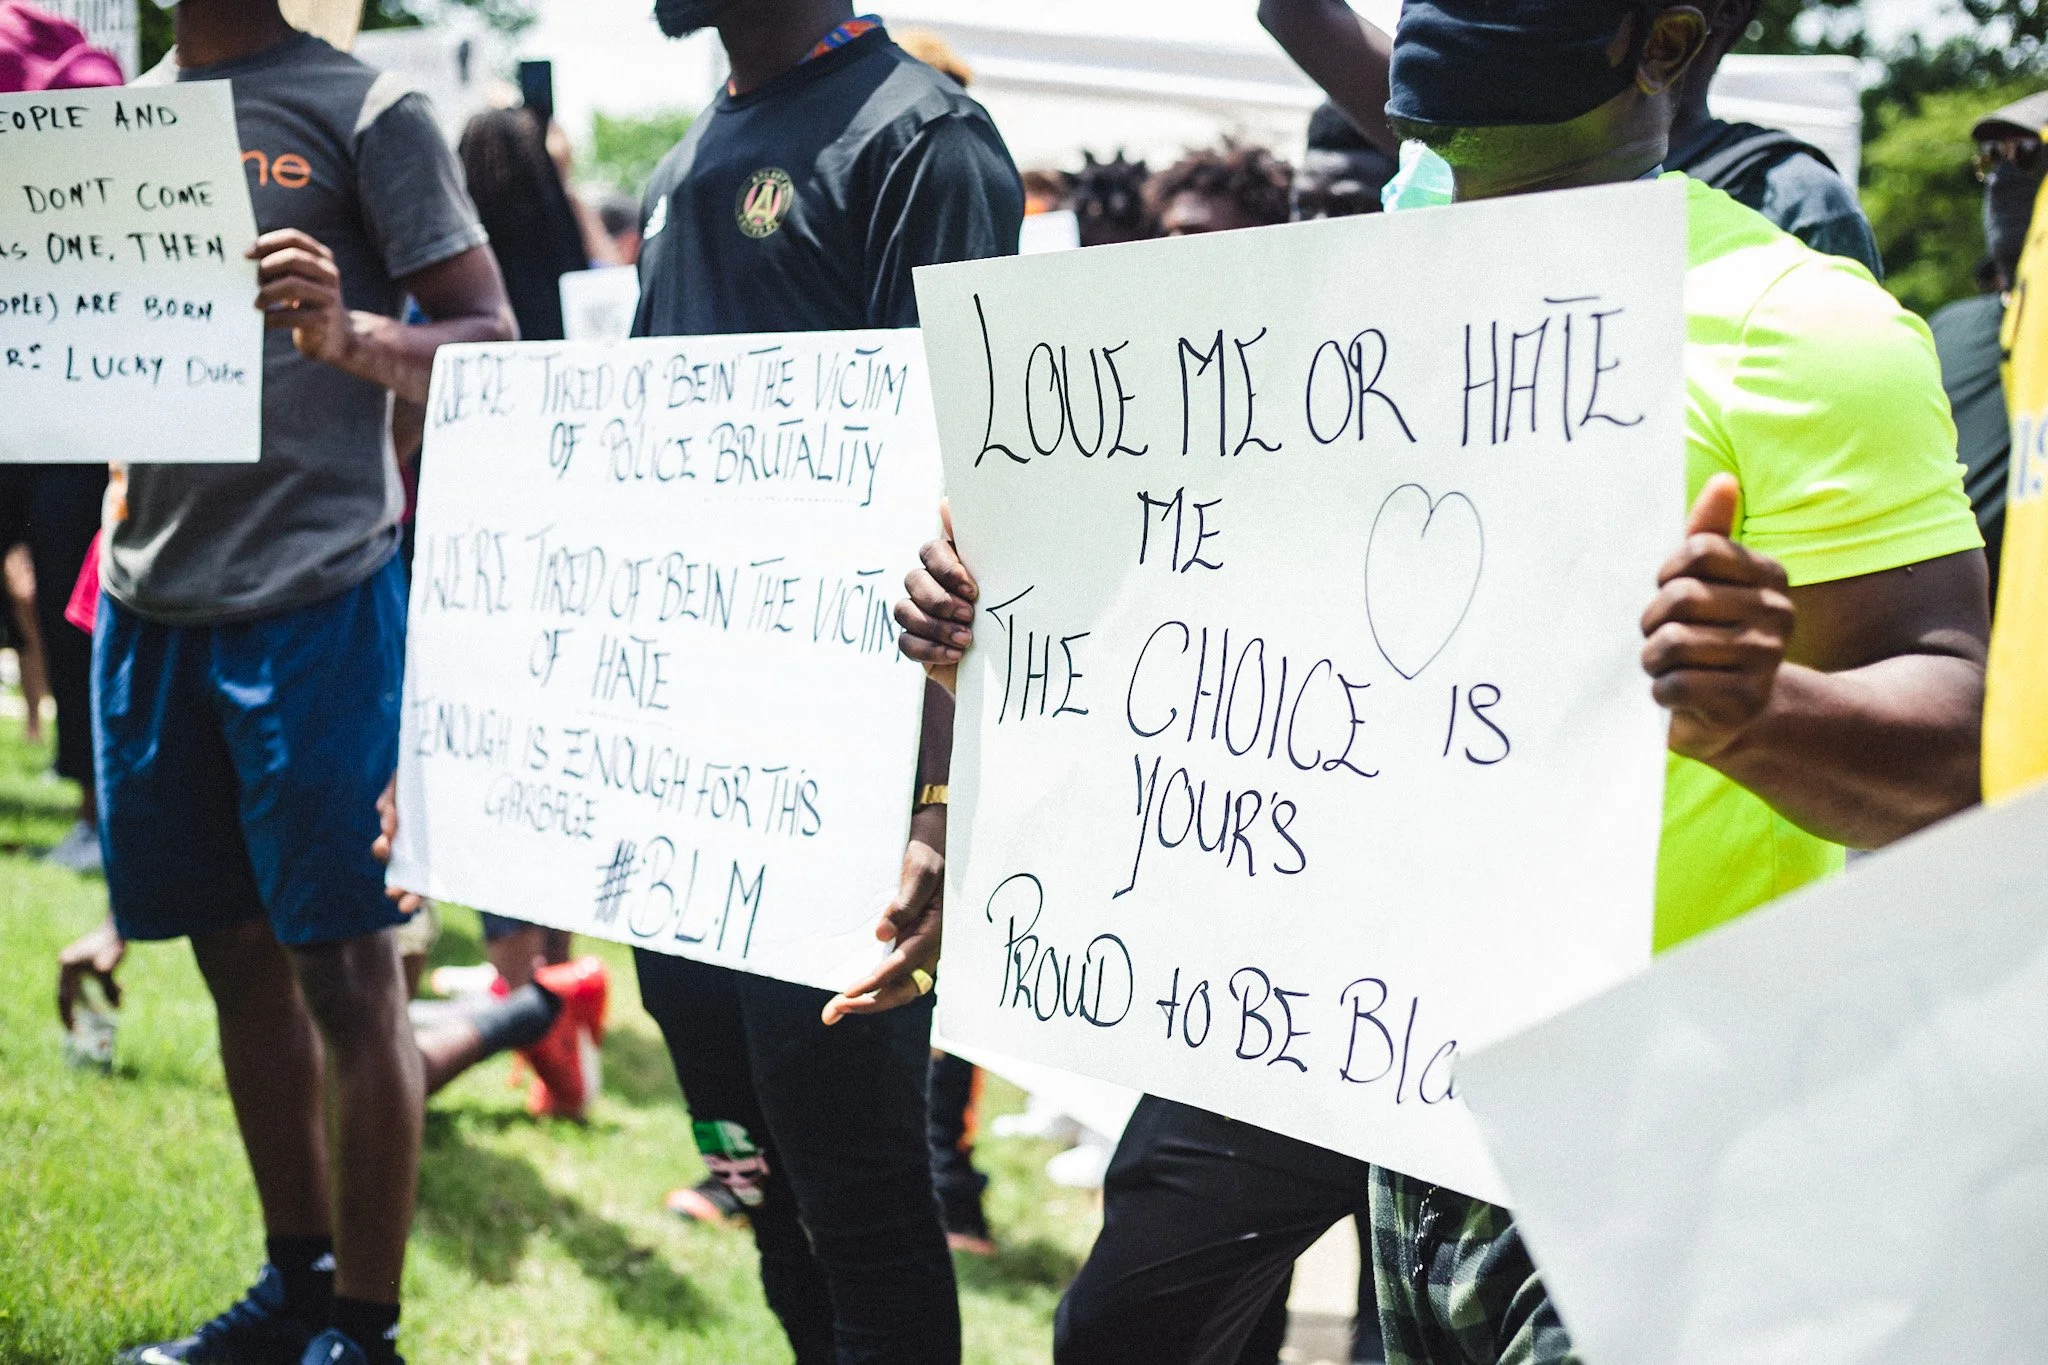 EOPLE AND
DON'T COME
AS ONE, THEN
OPLE) ARE BORN
R: LUCKY Dube
ne
A
WE'RE TIRED OF BEIN' THE VICTIM
OF POLICE BRUTALITY
WE'RE TIRED OF BEIN THE VICTIM
OF HATE
ENOUGH IS ENOUGH FOR THIS
GARBAGE
#B.L.M
LOVE ME OR HATE
ME
THE CHOICE IS
YOUR'S
PROUD to BE Bla